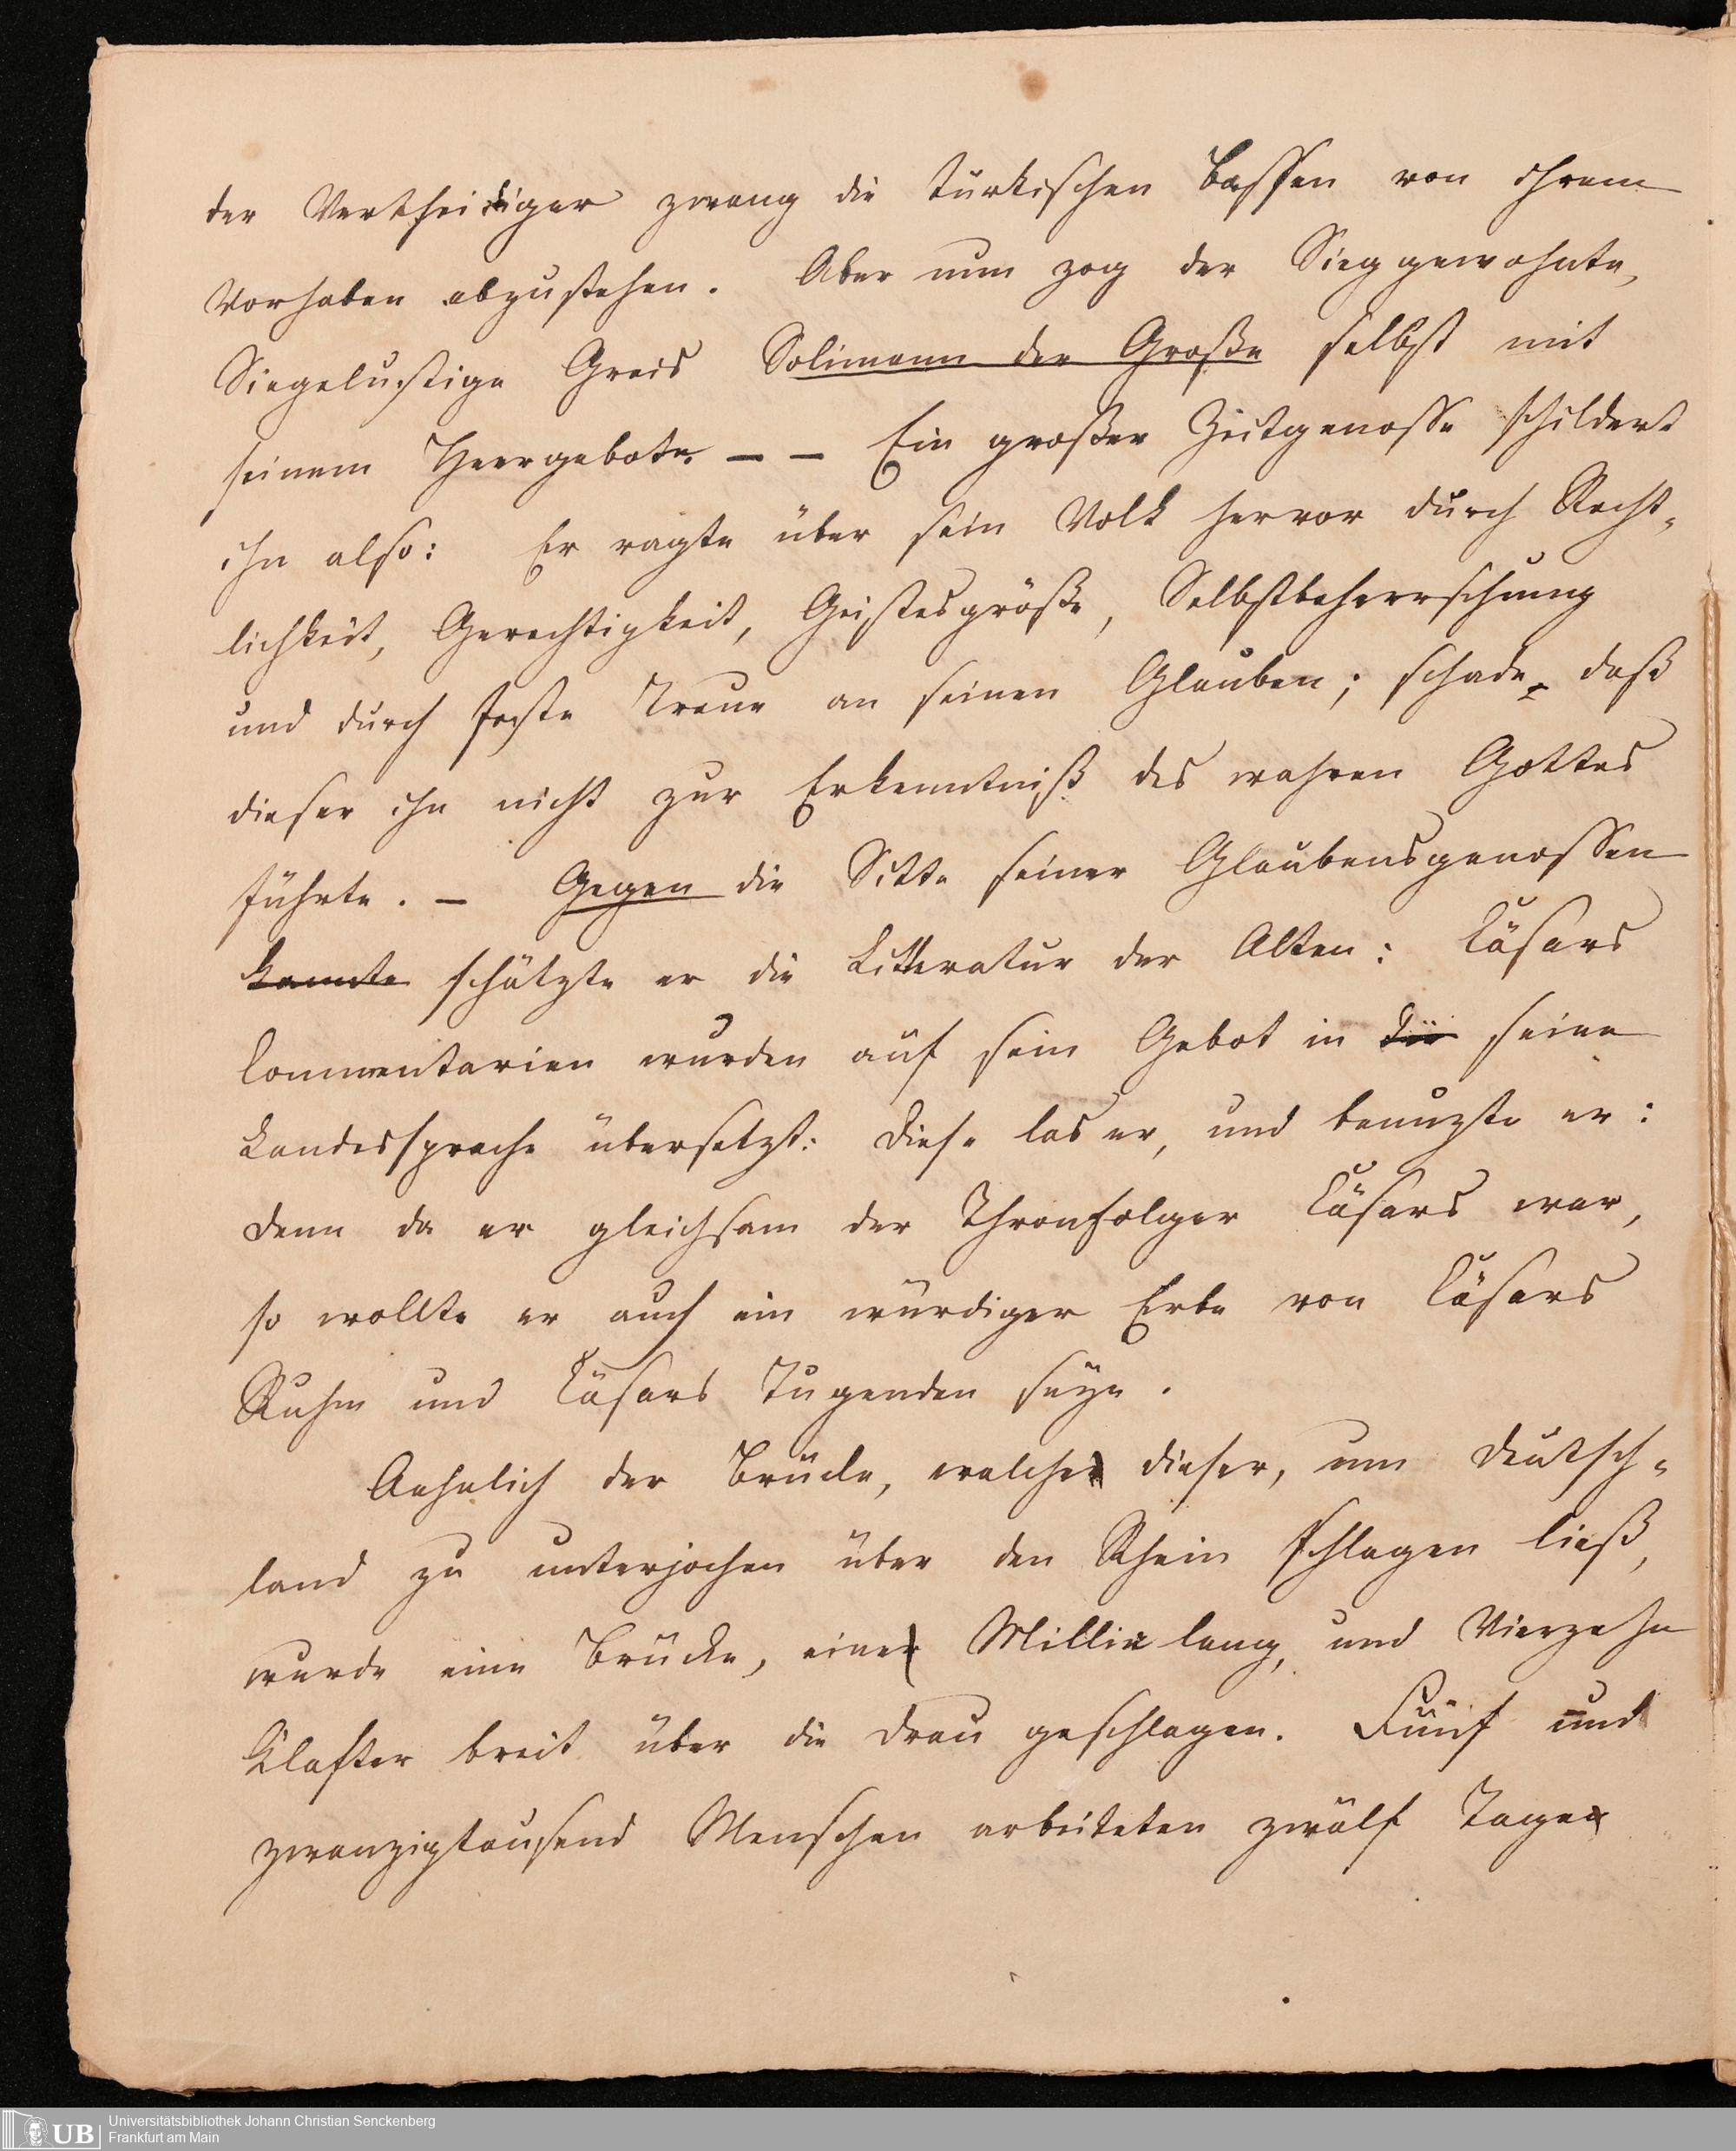 der Vertheidiger zwang die türkischen Bassen von ihrem
Vorhaben abzustehen. Aber nun zog der Sieggewohnte,
Siegelustige Greis Solimann der Große selbst mit
seinem Heergebote. – – Ein großer Zeitgenosse schildert
ihn also: Er ragte über sein Volk hervor durch Recht-
lichkeit, Gerechtigkeit, Geistesgröße, Selbstbeherrschung
und durch feste Treue an seinen Glauben; schade, daß
dieser ihn nicht zur Erkenntniß des wahren Gottes
führte. – Gegen die Sitte seiner Glaubensgenossen
kannte schätzte er die Litteratur der Alten: Cäsars
Commentarien wurden auf sein Gebot in die seine
Landessprache übersetzt: diese las er, und benuzte er:
denn da er gleichsam der Thronfolger Cäsars war,
so wollte er auch ein würdiger Erbe von Cäsars
Ruhm und Cäsars Tugenden seyn.
Aehnlich der Brücke, welche dieser, um Deutsch-
land zu unterjochen über den Rhein schlagen ließ,
wurde eine Brücke, eine Millie lang, und Vierzehn
Klafter breit über die Drau geschlagen. Fünf und
zwanzigtausend Menschen arbeiteten zwölf Tage
UB
Universitätsbibliothek Johann Christian Senckenberg
Frankfurt am Main